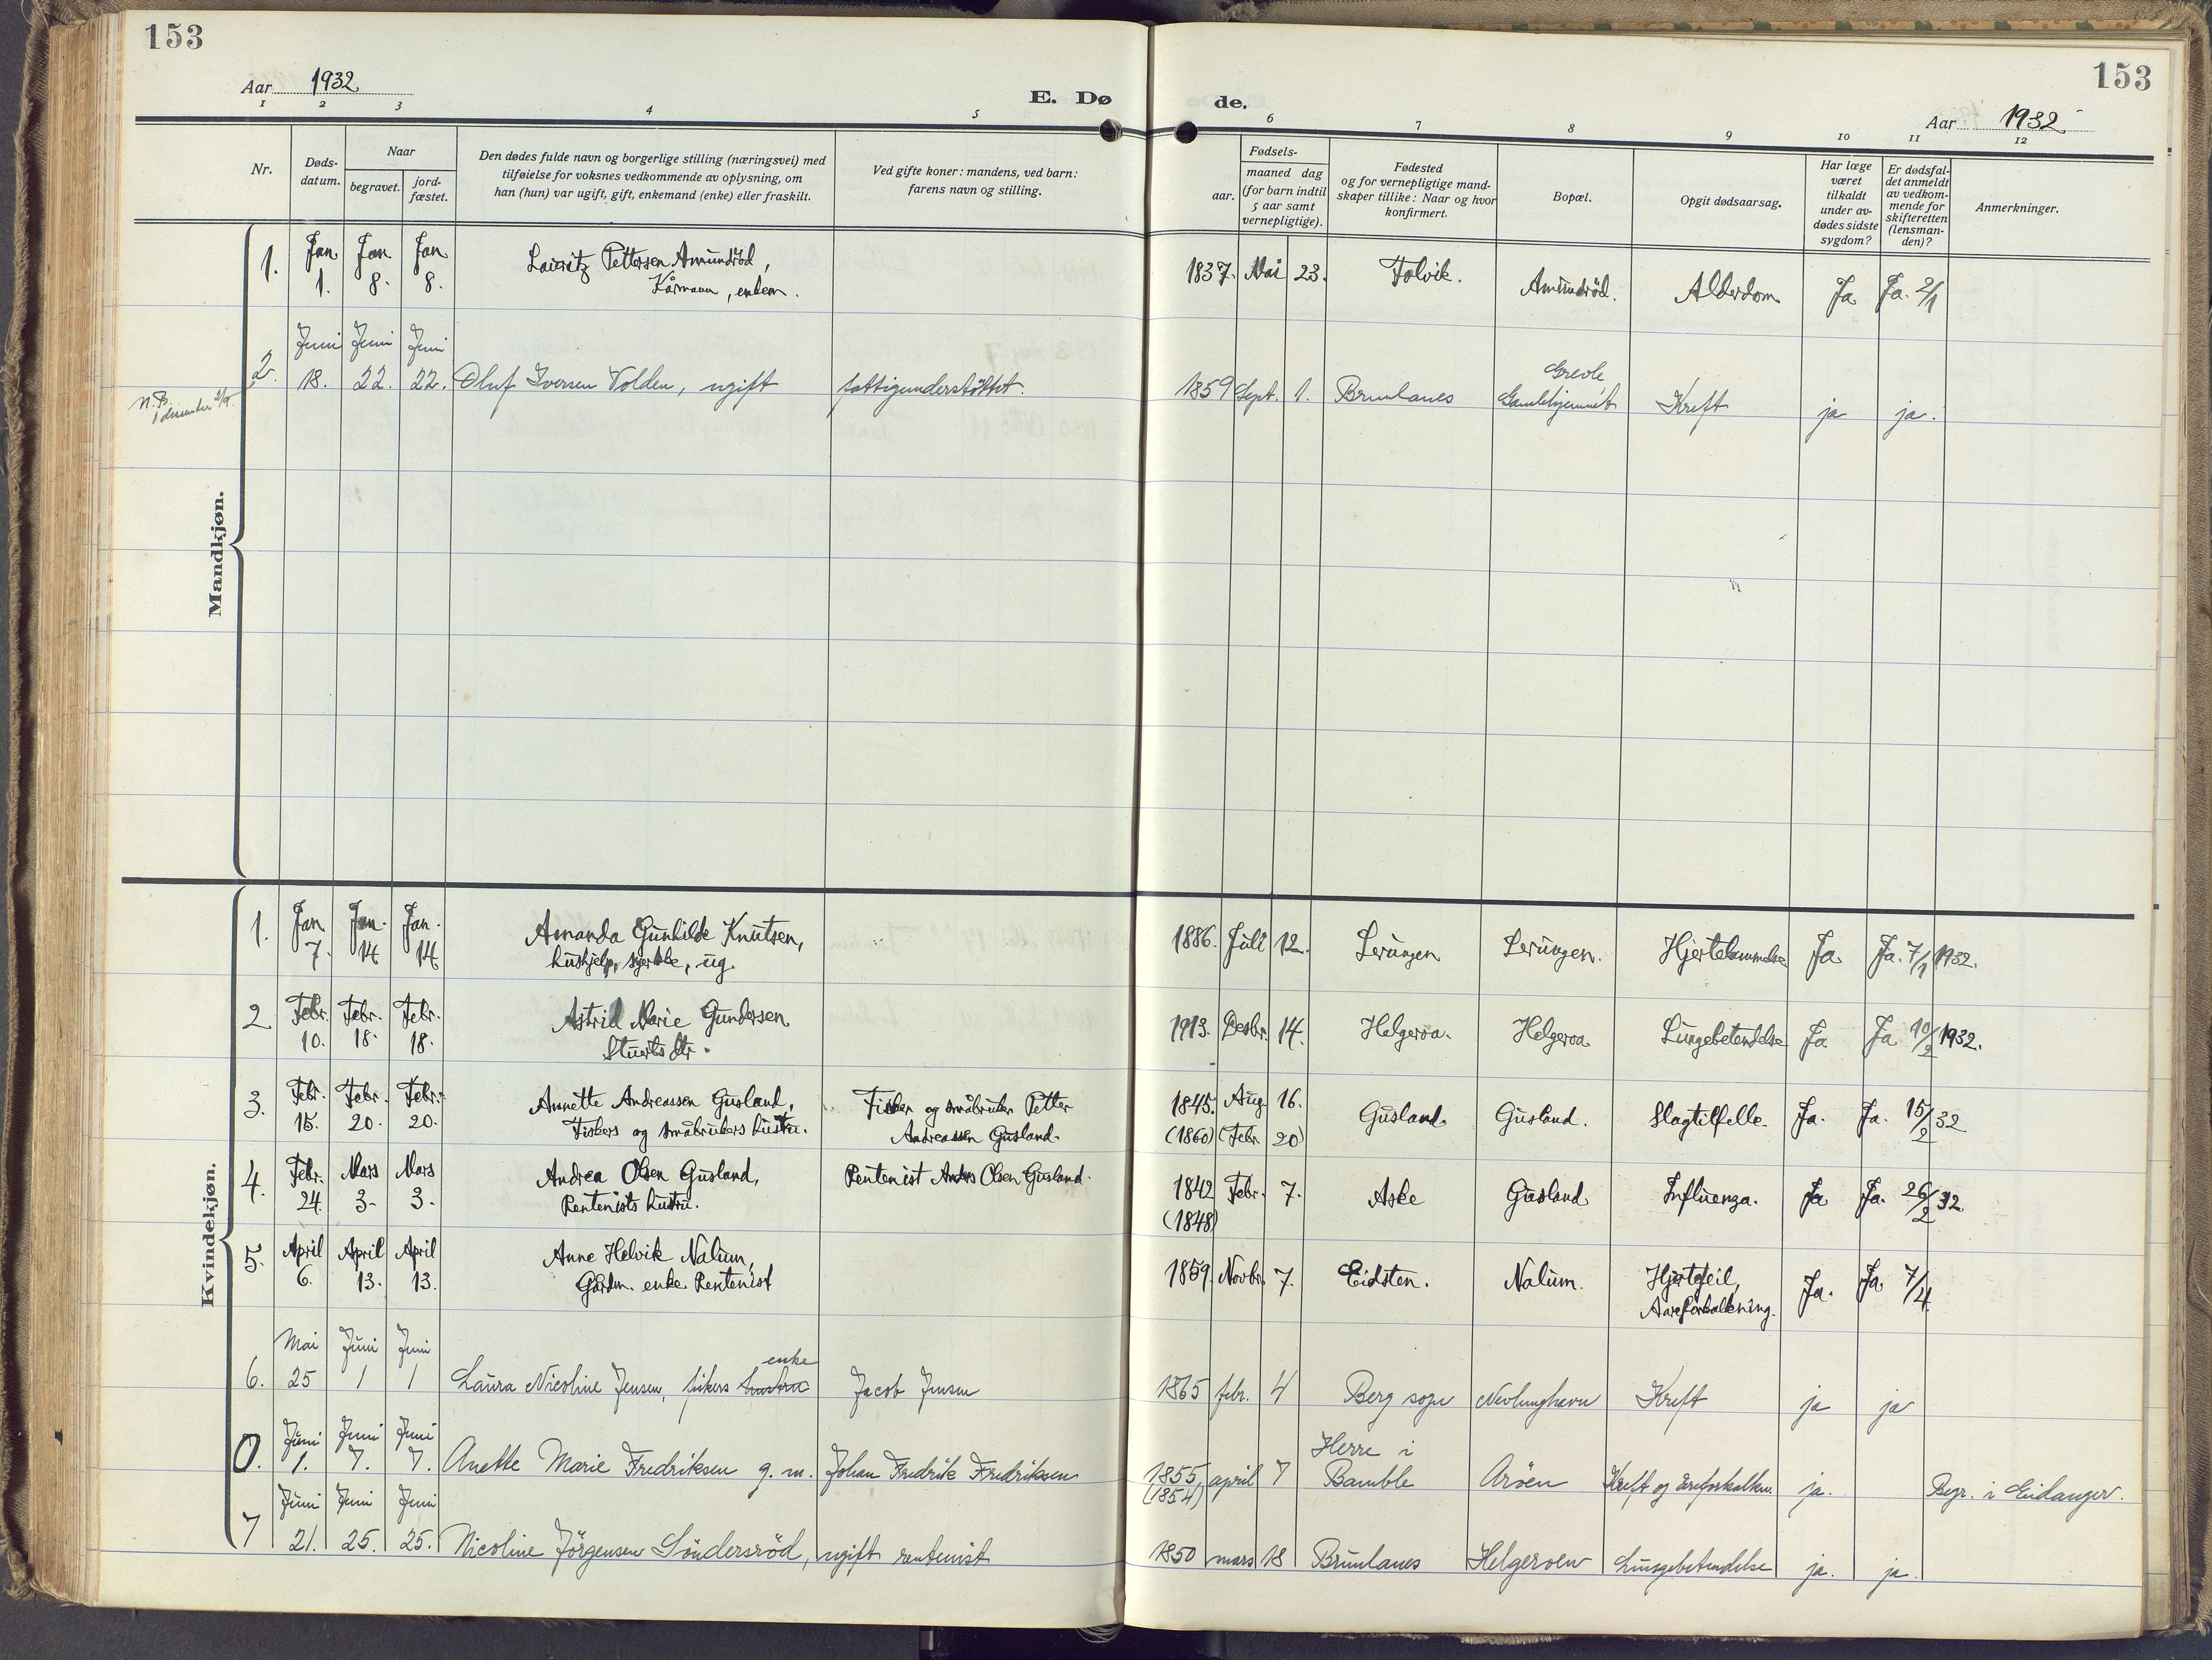 153
153
Aar 1932
E. Døde.
Aar 1932
1 2 3 4 5 6 7 8 9 10 11 12
Nr.
Døds-
datum.
Naar
begravet.
jord-
fæstet.
Den dødes fulde navn og borgerlige stilling (næringsvei) med
tilføielse for voksnes vedkommende av oplysning, om
han (hun) var ugift, gift, enkemand (enke) eller fraskilt.
Ved gifte koner: mandens, ved barn:
farens navn og stilling.
Fødsels-
aar.
maaned dag
(for barn indtil
5 aar samt
vernepligtige).
Fødested
og for vernepligtige mand-
skaper tillike: Naar og hvor
konfirmert.
Bopæl.
Opgit dødsaarsag.
Har læge
været
tilkaldt
under av-
dødes sidste
sygdom?
Er dødsfal-
det anmeldt
av vedkom-
mende for
skifteretten
(lensman-
den)?
Anmerkninger.
Mandkjøn.
1. Jan. 1. Jan. 8. Jan. 8. Lauritz Pettersen Amundröd, 1837. Mai 23. Amundröd. Alderdom Ja Ja. 2/1
Kårmann, enkem.
Juni Juni Juni
2. 18. 22. 22. Oluf Iversen Volden, ugift fattigunderstöttet. 1859 Sept. 1. Brunlanes Grevle Gamlehjemmet Kreft ja ja.
N.B.
Kvindekjøn.
1. Jan. 7. Jan. 14 Jan. 14 Amanda Gunhilde Knutsen, 1886. Juli 12. Lerungen Lerungen. Hjertelammelse Ja Ja. 7/1 1932.
hushjelp, ug.
2 Febr. 10. Febr. 18. Febr. 18. Astrid Marie Gundersen 1913. Desbr. 14. Helgeroa. Helgeroa Lungebetendelse Ja Ja 10/2 1932.
3. Febr. 15. Febr. 20. Febr. 20. Annette Andreassen Gusland, Fisker og småbruker Petter 1845. Aug. 16. Gusland. Gusland. Slagtilfelle. Ja. Ja. 15/2 32
Fiskers og småbrukers hustru. Andreassen Gusland. (1860) (Febr. 20)
4. Febr. 24. Mars 3. Mars 3. Andrea Olsen Gusland, Rentenist Anders Olsen Gusland. 1842 Febr. 7. Aske Gusland Influenza. Ja Ja. 26/2 32
Rentenists hustru. (1848)
5. April 6. April 13. April 13. Anne Helvik Nalum, 1859. Novbr. 7. Eidsten. Nalum. Hjertefeil, Ja. Ja. 7/4
Gårdm. enke Rentenist Aareforkalkning.
Mai Juni Juni enke
6. 25 1 1 Laura Nicoline Jensen, fiskers hustru Jacob Jensen 1865 febr. 4 Berg sogn Nevlunghavn Kreft ja ja
Juni Juni Juni Herre i
0. 1. 7. 7. Anette Marie Fredriksen g. m. Johan Fredrik Fredriksen 1855 april 7 Bamble Aröen Kreft og åreforkalkn. ja. Begr. i Eidanger.
(1854)
Juni Juni Juni
7 21. 25. 25. Nicoline Jörgensen Söndersröd, ugift rentenist 1850 mars 18 Brunlanes Helgeroen Lungebetendelse ja. ja.